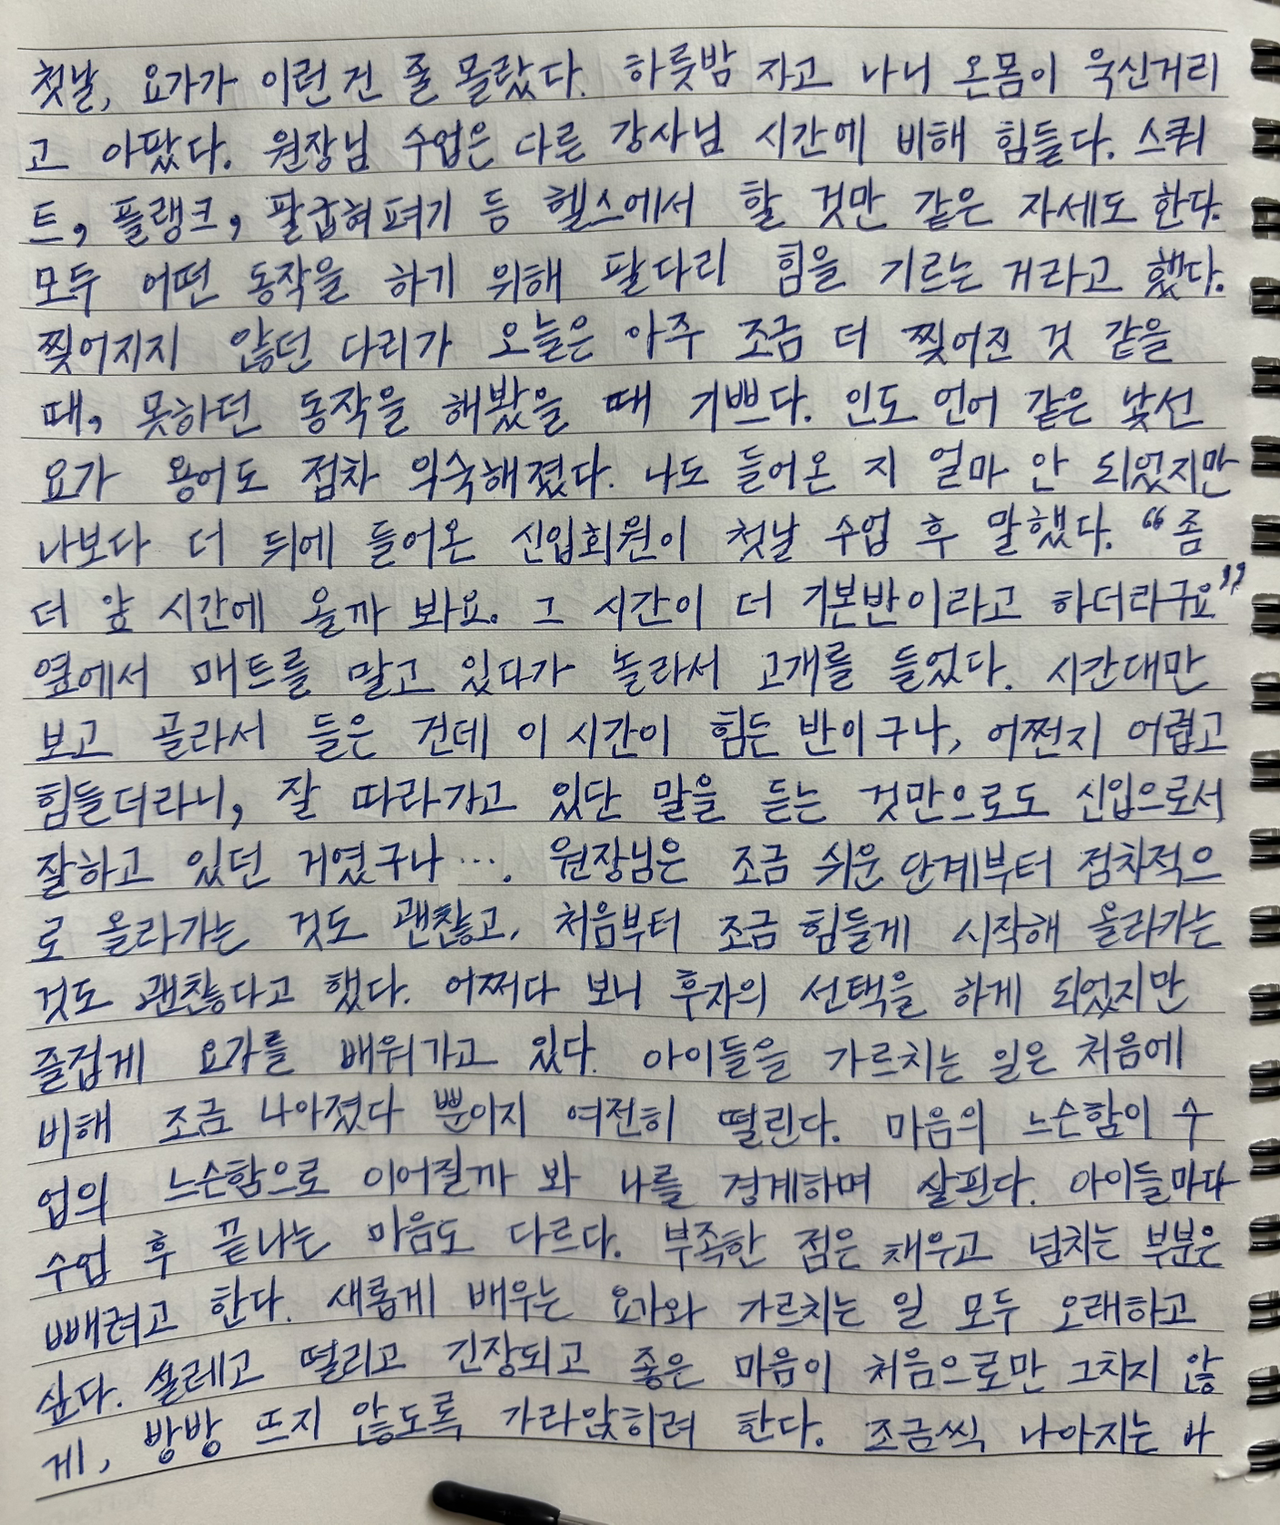 첫날, 요가가 이런 건 줄 몰랐다. 하룻밤 자고 나니 온몸이 욱신거리
고 아팠다. 원장님 수업은 다른 강사님 시간에 비해 힘들다. 스쿼
트, 플랭크, 팔굽혀펴기 등 헬스에서 할 것만 같은 자세도 한다.
모두 어떤 동작을 하기 위해 팔다리 힘을 기르는 거라고 했다.
찢어지지 않던 다리가 오늘은 아주 조금 더 찢어진 것 같을
때, 못하던 동작을 해봤을 때 기쁘다. 인도 언어 같은 낯선
요가 용어도 점차 익숙해졌다. 나도 들어온 지 얼마 안 되었지만
나보다 더 뒤에 들어온 신입회원이 첫날 수업 후 말했다. “좀
더 앞 시간에 올까 봐요. 그 시간이 더 기본반이라고 하더라구요”
옆에서 매트를 말고 있다가 놀라서 고개를 들었다. 시간대만
보고 골라서 들은 건데 이 시간이 힘든 반이구나, 어쩐지 어렵고
힘들더라니, 잘 따라가고 있단 말을 듣는 것만으로도 신입으로서
잘하고 있던 거였구나…. 원장님은 조금 쉬운 단계부터 점차적으
로 올라가는 것도 괜찮고, 처음부터 조금 힘들게 시작해 올라가는
것도 괜찮다고 했다. 어쩌다 보니 후자의 선택을 하게 되었지만
즐겁게 요가를 배워가고 있다. 아이들을 가르치는 일은 처음에
비해 조금 나아졌다 뿐이지 여전히 떨린다. 마음의 느슨함이 수
업의 느슨함으로 이어질까 봐 나를 경계하며 살핀다. 아이들마다
수업 후 끝나는 마음도 다르다. 부족한 점은 채우고 넘치는 부분은
빼려고 한다. 새롭게 배우는 요가와 가르치는 일 모두 오래하고
싶다. 설레고 떨리고 긴장되고 좋은 마음이 처음으로만 그치지 않
게, 방방 뜨지 않도록 가라앉히려 한다. 조금씩 나아지는 바